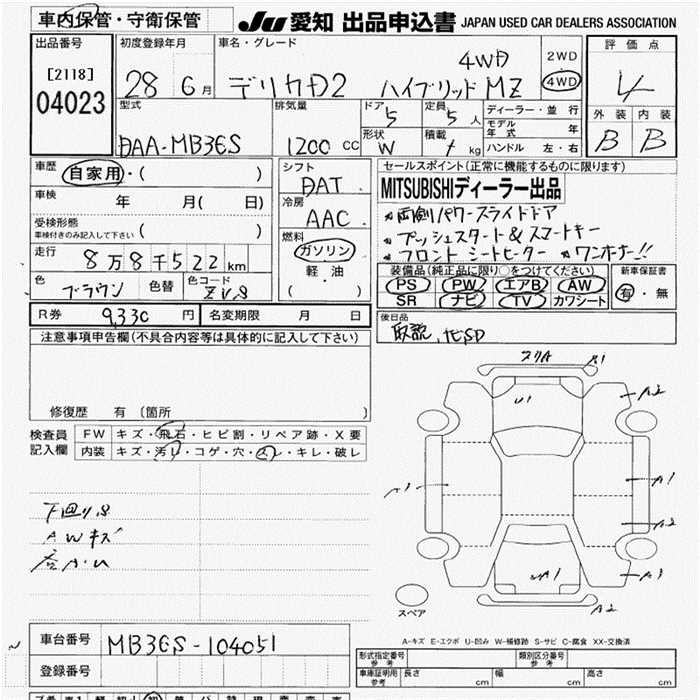 車内保管・守衛保管
JU 愛知 出品申込書 JAPAN USED CAR DEALERS ASSOCIATION
出品番号
[2118]
04023
初度登録年月
28 6 月
車名・グレード
4WD
デリカD2 ハイブリッド MZ
2WD
4WD
評価点
4
外装 内装
B B
型式
DAA-MB36S
排気量
1200 CC
ドア
5
定員
5 人
形状
W
積載
kg
ディーラー・並行
モデル年式 年
ハンドル 左・右
車歴
自家用・( )
車検
年 月( 日)
受検形態
車検付きのみ記入して下さい ( )
走行
8万8千522 km
色
ブラウン
色替
色コード
ZV8
シフト
DAT
冷房
AAC
燃料
ガソリン
軽・油
( )
セールスポイント(正常に機能するものに限ります)
MITSUBISHIディーラー出品
両側パワースライドドア
プッシュスタート&スマートキー
フロントシートヒーター ワンオーナー!!
装備品(純正品に限り○をつけてください)
PS PW エアB AW
SR ナビ TV カワシート
新車保証書
有・無
R券 9,330 円
名変期限 月 日
後日品
取説,
注意事項申告欄(不具合内容等は具体的に記入して下さい)
修復歴 有 〔箇所 〕
検査員記入欄
FW キズ・飛石・ヒビ割・リペア跡・X要
内装 キズ・汚レ・コゲ・穴・スレ・キレ・破レ
下回りS
AWキズ
A1
A2
U1
A1
A1
A2
A3
A2
スペア
A-キズ E-エクボ U-凹み W-補修跡 S-サビ C-腐食 XX-交換済
車台番号 MB36S-104051
登録番号
形式指定番号
参考
類別区分番号
参考
車庫証明用
参考
長さ cm 幅 cm 高さ cm